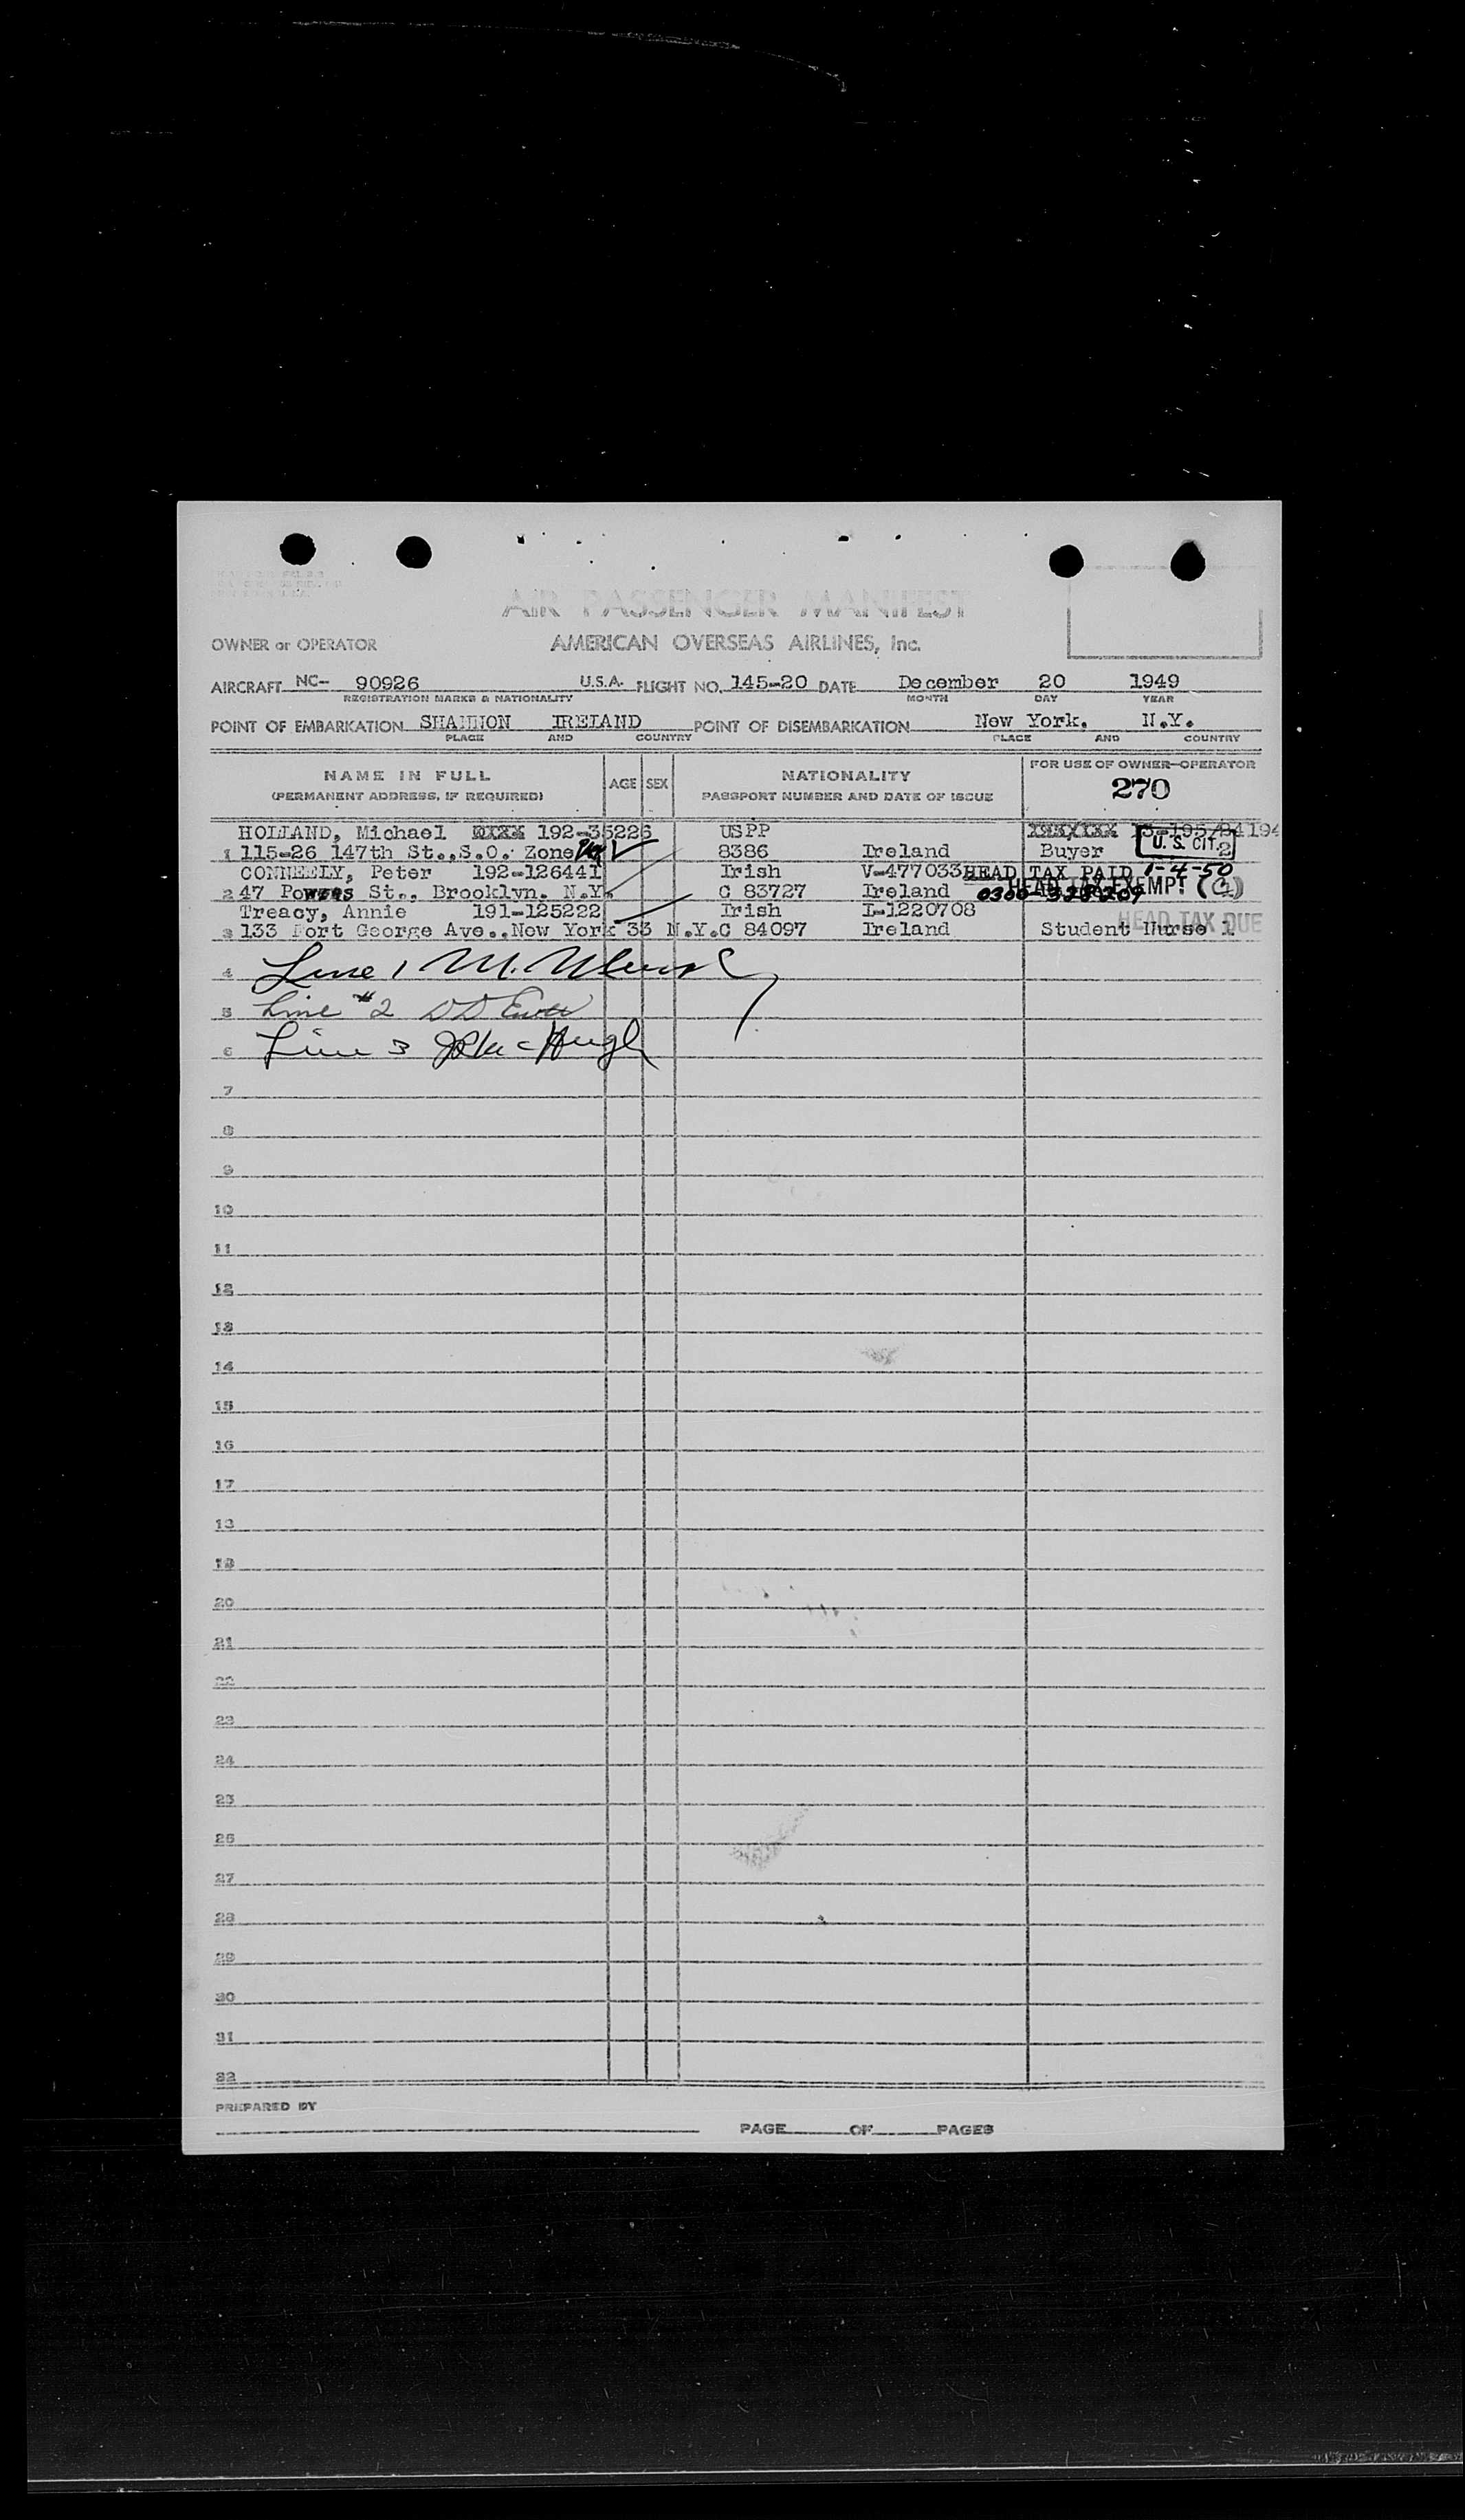 AIR PASSENGER MANIFEST
OWNER or OPERATOR AMERICAN OVERSEAS AIRLINES, Inc.
AIRCRAFT NC- 90926 U.S.A. FLIGHT NO. 145-20 DATE December 20 1949
REGISTRATION MARKS & NATIONALITY MONTH DAY YEAR
POINT OF EMBARKATION SHANNON IRELAND POINT OF DISEMBARKATION New York, N.Y.
PLACE AND COUNTRY PLACE AND COUNTRY
NAME IN FULL AGE SEX NATIONALITY FOR USE OF OWNER-OPERATOR
(PERMANENT ADDRESS, IF REQUIRED) PASSPORT NUMBER AND DATE OF ISSUE 270
HOLLAND, Michael 192-35226 USPP
1 115-26 147th St.,S.O. Zone 8386 Ireland Buyer U. S. CIT. 2
CONNEELY, Peter 192-126441 Irish V-477033 HEAD TAX PAID 1-4-50
2 47 Powers St., Brooklyn. N.Y. C 83727 Ireland HEAD TAX EXEMPT
Treacy, Annie 191-125222 Irish I-1220708
3 133 Fort George Ave.,New York 33 N.Y.C 84097 Ireland Student Nurse HEAD TAX DUE
4 Line 1 M.
5 Line #2
6 Line 3
7
8
9
10
11
12
13
14
15
16
17
18
19
20
21
22
23
24
25
26
27
28
29
30
31
32
PREPARED BY
PAGE OF PAGES